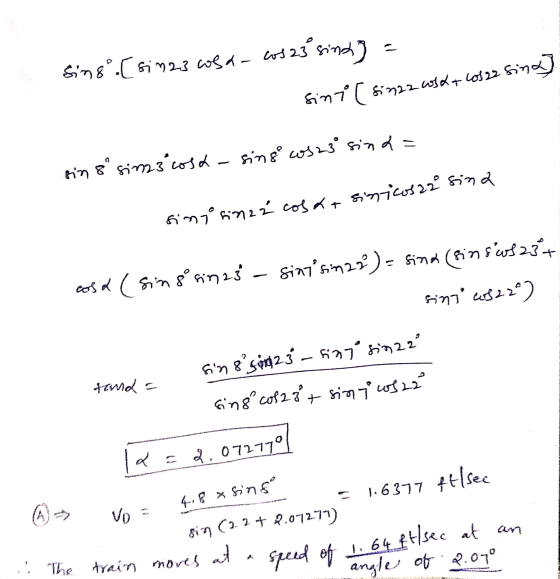 sin8°.[sin23 cosα - cos23° sinα] =
sin7°[sin22 cosα + cos22 sinα]
sin8° sin23° cosα - sin8° cos23° sinα =
sin7° sin22° cosα + sin7° cos22° sinα
cosα (sin8° sin23° - sin7° sin22°) = sinα (sin8° cos23° +
sin7° cos22°)
tanα = sin8° sin23° - sin7° sin22° / sin8° cos23° + sin7° cos22°
α = 2.07277°
Ⓐ ⇒ VD = 4.8 × sin8° / sin(22 + 2.07277) = 1.6377 ft/sec
∴ The train moves at a speed of 1.64 ft/sec at an
angle of 2.07°